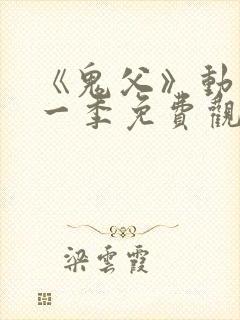 《鬼父》動
一季免費觀
梁雲霞